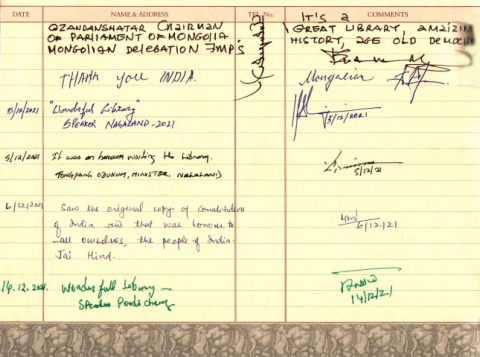 DATE NAME & ADDRESS TEL. No. COMMENTS
GZANDANSHATAR CHAIRMAN
OF PARLIAMENT OF MONGOLIA
MONGOLIAN DELEGATION 7MP's
IT's a
GREAT LIBRARY, AMAIZIN
HISTORY, AGE OLD DEMOCR
THANK you INDIA.
Mongolian
5/12/2021 "Wonderful Library"
SPEAKER NAGALAND-2021
5/12/2021
5/12/2021 It was an honour visiting the Library.
TONGPANG OZUKUM, MINISTER, NAGALAND)
5/12/21
6/12/2021 Saw the original copy of Constitution
of India and that was honour to
all ourselves, the people of India.
Jai Hind.
6/12/21
14.12.2021. Wonderfull Library —
Speaker Pondicherry
14/12/21